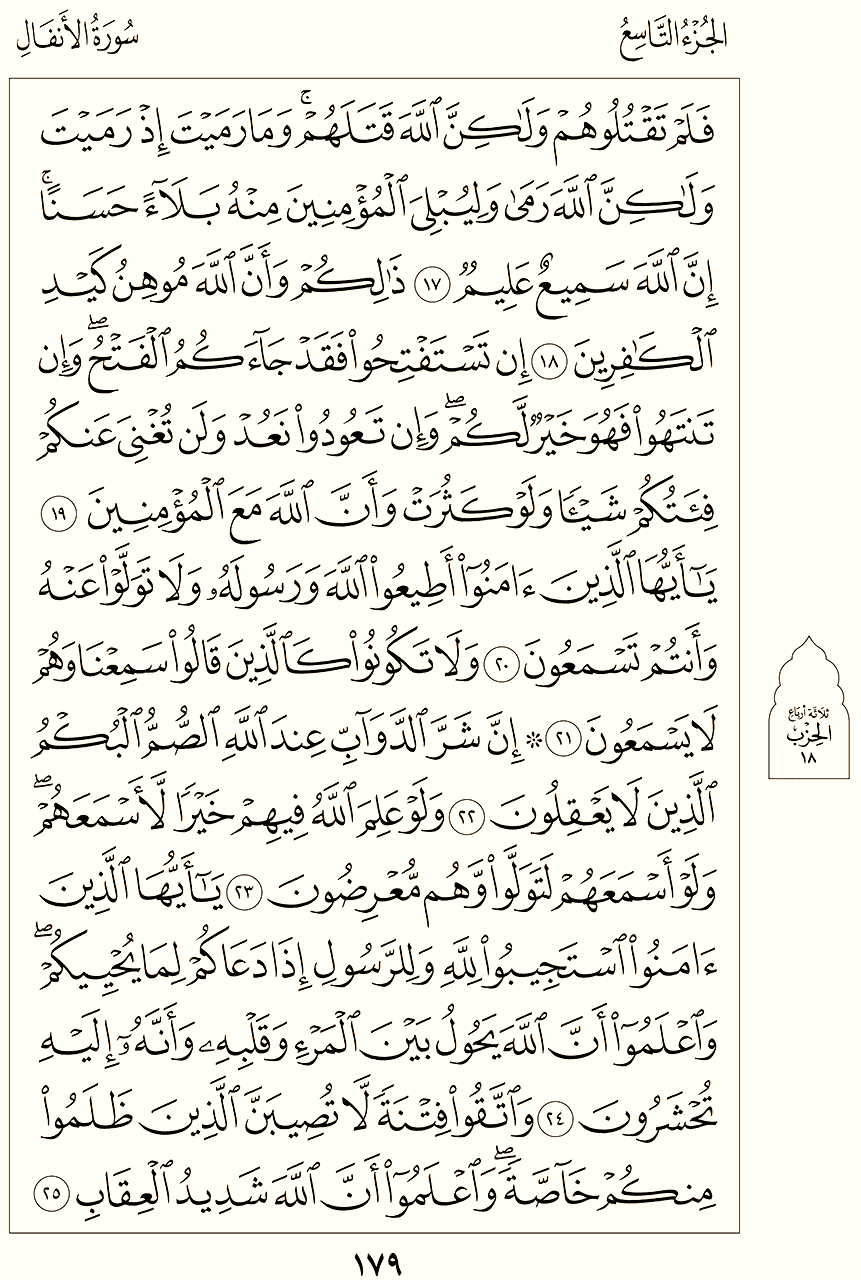 الجُزْءُ التَّاسِعُ
سُورَةُ الأَنفَالِ
فَلَمْ تَقْتُلُوهُمْ وَلَٰكِنَّ ٱللَّهَ قَتَلَهُمْۚ وَمَا رَمَيْتَ إِذْ رَمَيْتَ
وَلَٰكِنَّ ٱللَّهَ رَمَىٰ وَلِيُبْلِىَ ٱلْمُؤْمِنِينَ مِنْهُ بَلَآءً حَسَنًاۚ
إِنَّ ٱللَّهَ سَمِيعٌ عَلِيمٌ ١٧ ذَٰلِكُمْ وَأَنَّ ٱللَّهَ مُوهِنُ كَيْدِ
ٱلْكَٰفِرِينَ ١٨ إِن تَسْتَفْتِحُوا۟ فَقَدْ جَآءَكُمُ ٱلْفَتْحُۖ وَإِن
تَنتَهُوا۟ فَهُوَ خَيْرٌ لَّكُمْۖ وَإِن تَعُودُوا۟ نَعُدْ وَلَن تُغْنِىَ عَنكُمْ
فِئَتُكُمْ شَيْـًٔا وَلَوْ كَثُرَتْ وَأَنَّ ٱللَّهَ مَعَ ٱلْمُؤْمِنِينَ ١٩
يَٰٓأَيُّهَا ٱلَّذِينَ ءَامَنُوٓا۟ أَطِيعُوا۟ ٱللَّهَ وَرَسُولَهُۥ وَلَا تَوَلَّوْا۟ عَنْهُ
وَأَنتُمْ تَسْمَعُونَ ٢٠ وَلَا تَكُونُوا۟ كَٱلَّذِينَ قَالُوا۟ سَمِعْنَا وَهُمْ
لَا يَسْمَعُونَ ٢١ ۞ إِنَّ شَرَّ ٱلدَّوَآبِّ عِندَ ٱللَّهِ ٱلصُّمُّ ٱلْبُكْمُ
ٱلَّذِينَ لَا يَعْقِلُونَ ٢٢ وَلَوْ عَلِمَ ٱللَّهُ فِيهِمْ خَيْرًا لَّأَسْمَعَهُمْۖ
وَلَوْ أَسْمَعَهُمْ لَتَوَلَّوا۟ وَّهُم مُّعْرِضُونَ ٢٣ يَٰٓأَيُّهَا ٱلَّذِينَ
ءَامَنُوا۟ ٱسْتَجِيبُوا۟ لِلَّهِ وَلِلرَّسُولِ إِذَا دَعَاكُمْ لِمَا يُحْيِيكُمْۖ
وَٱعْلَمُوٓا۟ أَنَّ ٱللَّهَ يَحُولُ بَيْنَ ٱلْمَرْءِ وَقَلْبِهِۦ وَأَنَّهُۥٓ إِلَيْهِ
تُحْشَرُونَ ٢٤ وَٱتَّقُوا۟ فِتْنَةً لَّا تُصِيبَنَّ ٱلَّذِينَ ظَلَمُوا۟
مِنكُمْ خَآصَّةًۖ وَٱعْلَمُوٓا۟ أَنَّ ٱللَّهَ شَدِيدُ ٱلْعِقَابِ ٢٥
ثَلَاثَةُ أَرْبَاعِ
الحِزْبِ
١٨
١٧٩